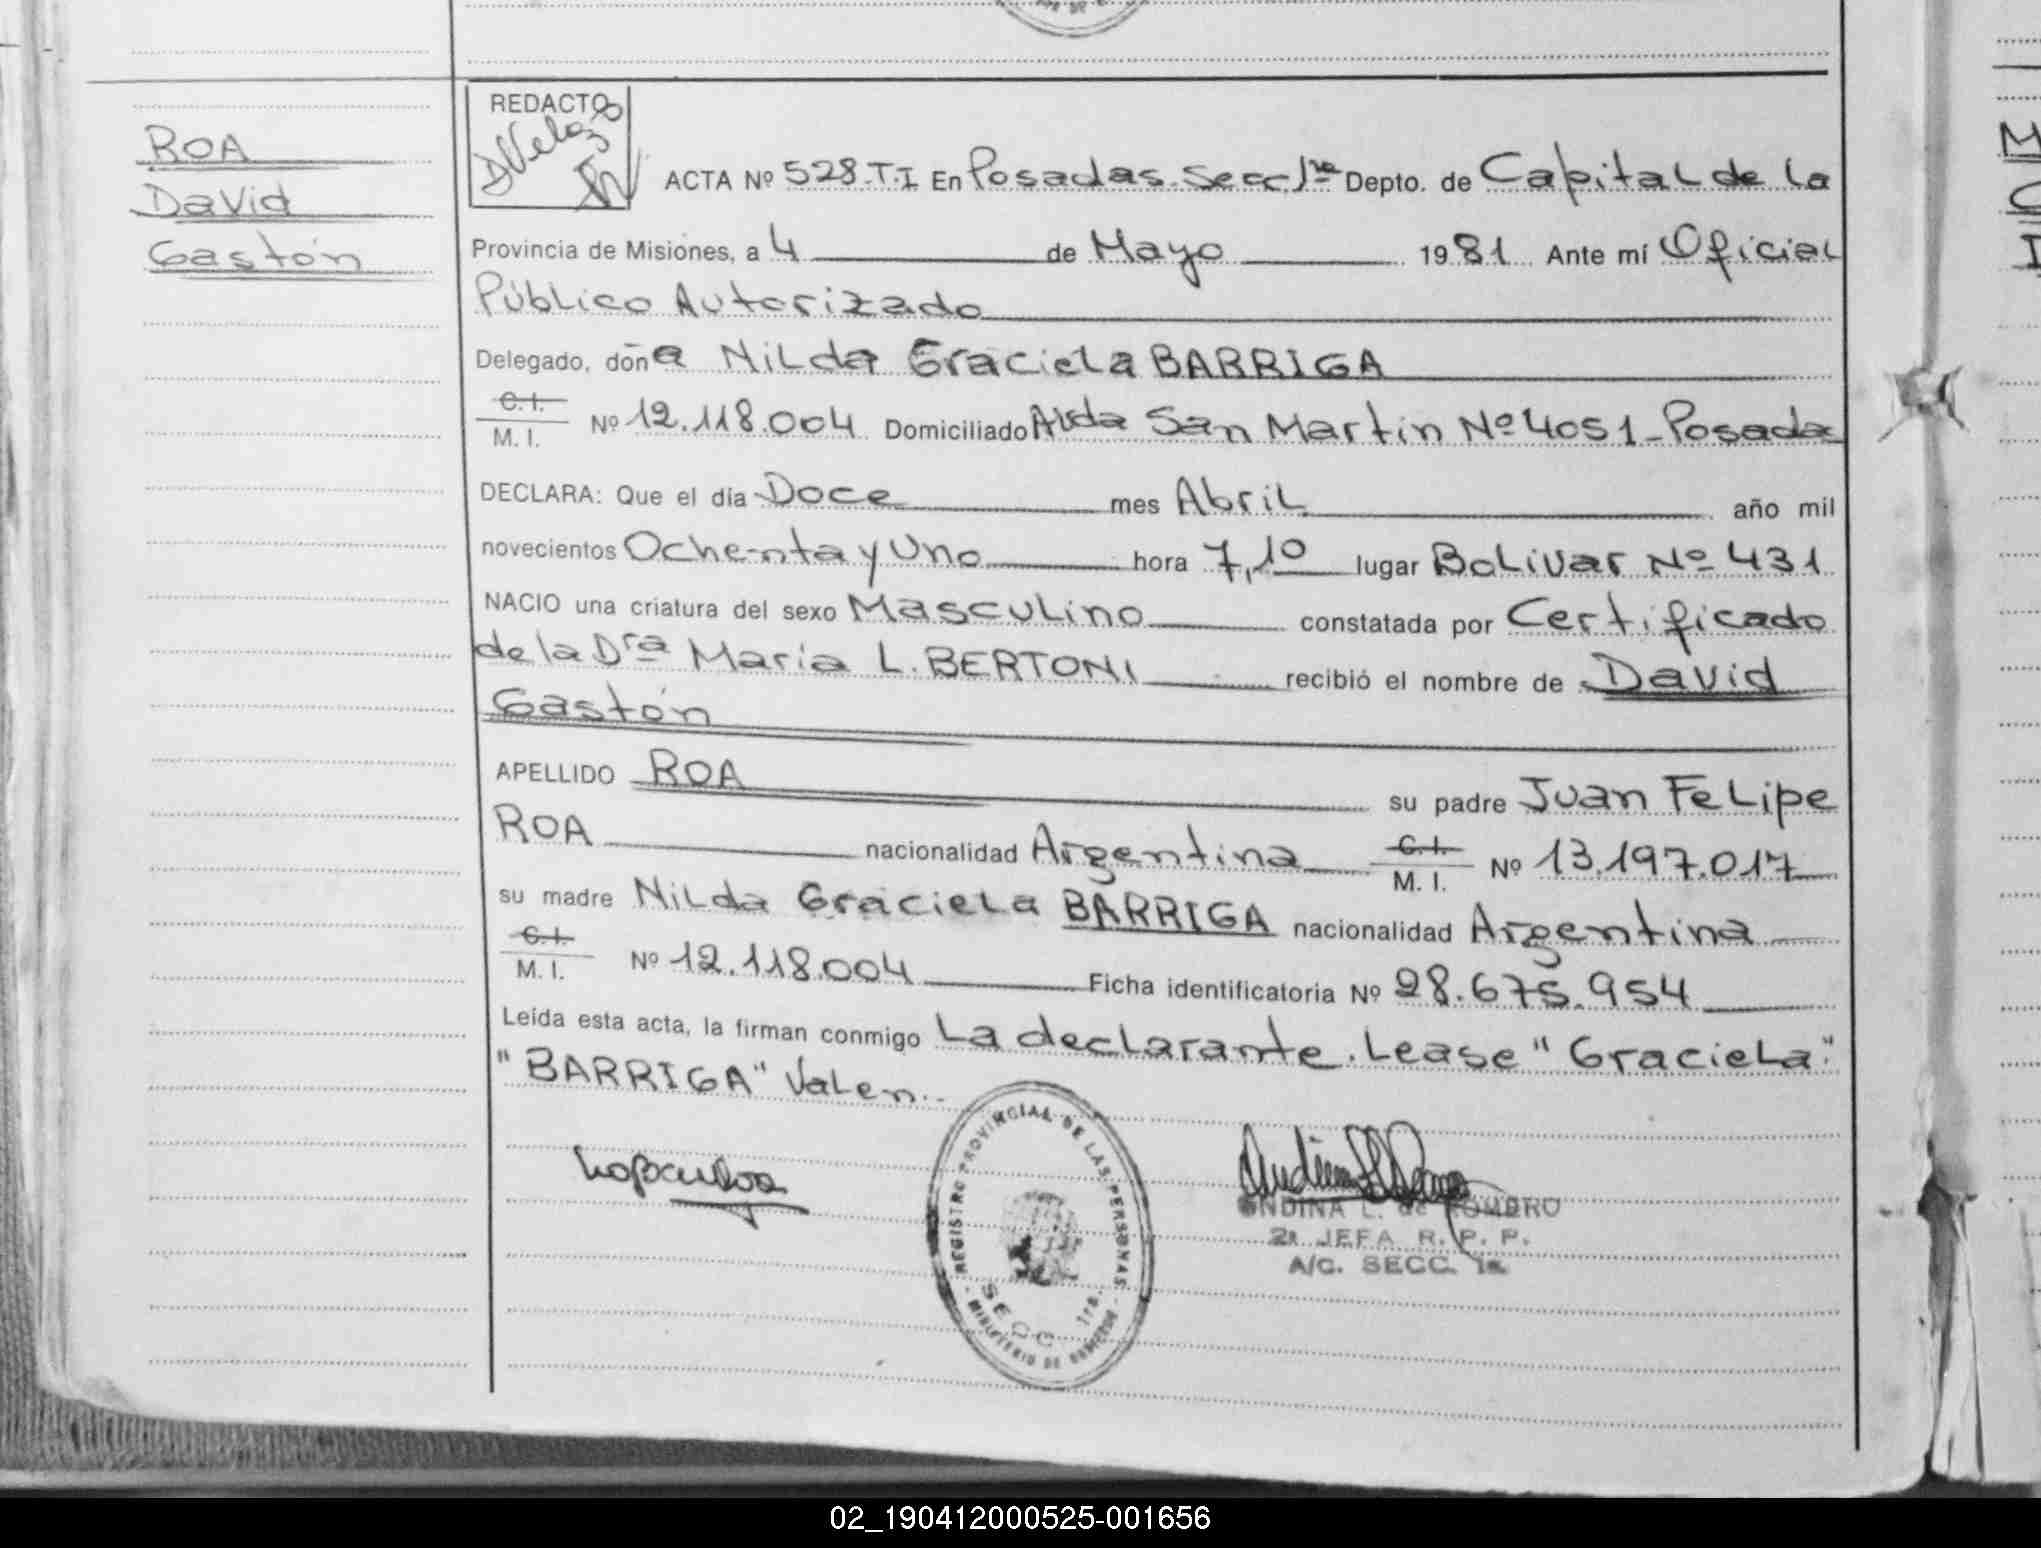 ROA
David
Gastón
REDACTO
ACTA Nº 528-T-I En Posadas Secc 1ra Depto. de Capital de la
Provincia de Misiones, a 4 de Mayo 1981 Ante mí Oficial
Público Autorizado
Delegado, doña Nilda Graciela BARRIGA
C.I.
M.I. Nº 12.118.004 Domiciliado Avda San Martin Nº 4051-Posadas
DECLARA: Que el día Doce mes Abril año mil
novecientos Ochenta y Uno hora 7,10 lugar Bolivar Nº 431
NACIO una criatura del sexo Masculino constatada por Certificado
de la Dra María L. BERTONI recibió el nombre de David
Gastón
APELLIDO ROA su padre Juan Felipe
ROA nacionalidad Argentina C.I. M.I. Nº 13.197.017
su madre Nilda Graciela BARRIGA nacionalidad Argentina
C.I.
M.I. Nº 12.118.004 Ficha identificatoria Nº 28.675.954
Leída esta acta, la firman conmigo La declarante. Lease "Graciela"
"BARRIGA" Valen.-
REGISTRO PROVINCIAL DE LAS PERSONAS
SECC 1ra.
MINISTERIO DE GOBIERNO
ONDINA L. de ROMERO
2a JEFA R. P. P.
A/C. SECC. 1a.
02_190412000525-001656